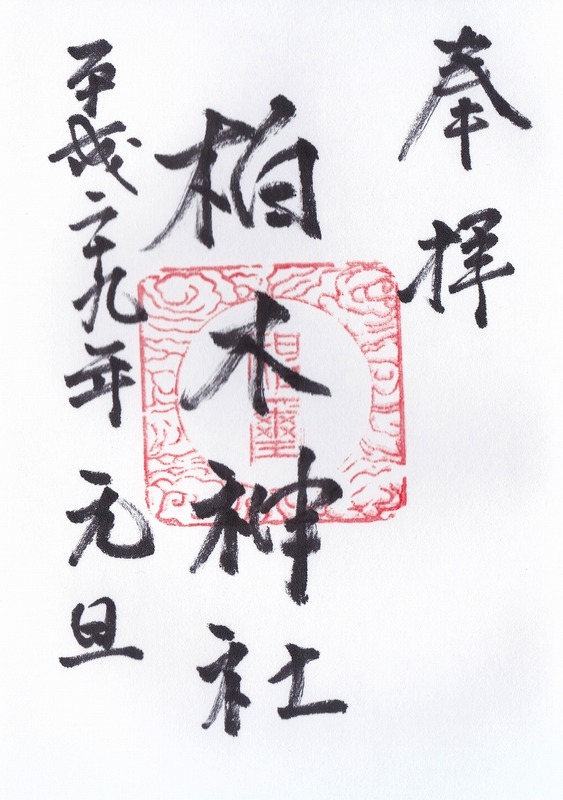 奉拝
柏木神社
平成二十九年元旦